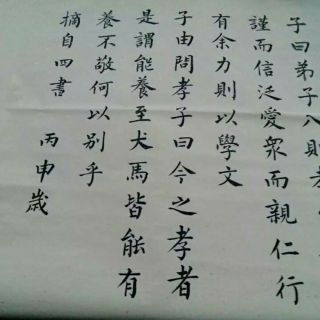 子曰弟子入則孝
謹而信泛愛衆而親仁行
有余力則以學文
子由問孝子曰今之孝者
是謂能養至犬馬皆能有
養不敬何以別乎
摘自四書
丙申歲